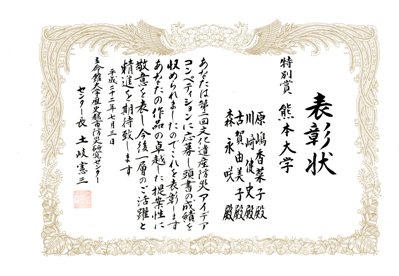 表彰状
特別賞 熊本大学
原嶋香菜子殿
川崎健史殿
古賀由美子殿
森永咲殿
あなたは第一回文化遺産防災アイデア
コンペティションに応募し頭書の成績を
収められましたのでこれを表彰します
あなたの作品の卓越した提案性に
敬意を表し今後一層のご活躍と
精進を期待致します
平成二十三年七月三日
立命館大学歴史都市防災研究センター
センター長 土岐憲三